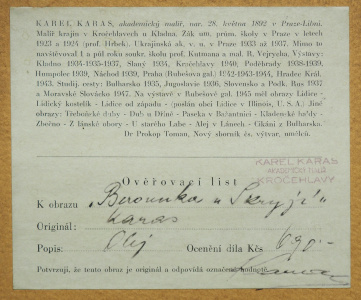 KAREL KARAS, akademický malíř, nar. 28. května 1892 v Praze-Libni.
Malíř krajin v Kročehlavech a Kladna. Žák um. prům. školy v Praze v letech
1923 a 1924 (prof. Hrbek). Ukrajinská ak. v. u. v Praze 1933 až 1937. Mimo to
navštěvoval 1 a půl roku soukr. školu prof. Kutmana a mal. R. Vejrycha. Výstavy:
Kladno 1934-1935-1937, Slaný 1934, Kročehlavy 1940, Poděbrady 1938-1939,
Humpolec 1939, Náchod 1939, Praha (Rubešova gal.) 1942-1943-1944, Hradec Král.
1943. Studij. cesty: Bulharsko 1935, Jugoslavie 1936, Slovensko a Podk. Rus 1937
a Moravské Slovácko 1947. Na výstavě v Rubešově gal. 1945 měl obrazy Lidice -
Lidický kostelík - Lidice od západu - (poslán obci Lidice v Illinois, U. S. A.) Jiné
obrazy: Třeboňské duby - Dub u Dříně - Paseka v Bažantnici - Kladenské haldy -
Zbečno - Z lánské obory - U starého Labe - Alej v Lánech - Cikáni z Bulharska.
Dr Prokop Toman, Nový slovník čs. výtvar. umělců.
KAREL KARAS
AKADEMICKÝ MALÍŘ
KROČEHLAVY
Ověřovací list
K obrazu „Berounka u Skryjí"
Originál: Karas
Popis: Olej Ocenění díla Kčs 690.-
Potvrzuji, že tento obraz je originál a odpovídá označené hodnotě.